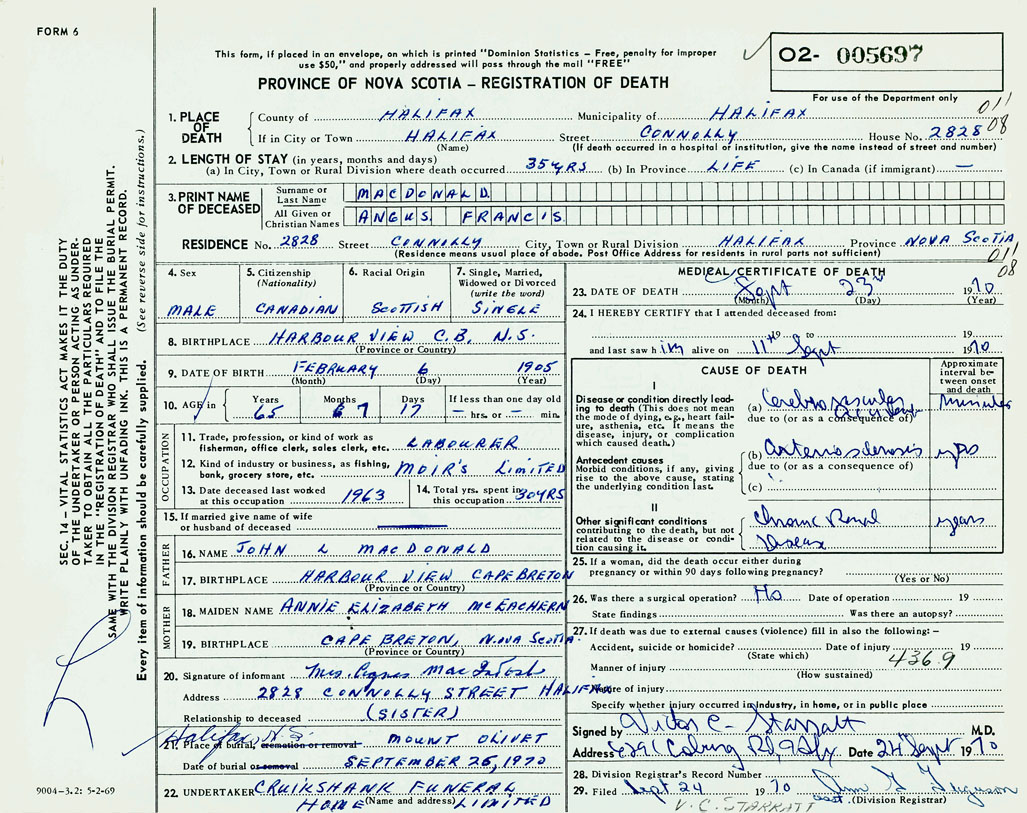 FORM 6
This form, if placed in an envelope, on which is printed "Dominion Statistics – Free, penalty for improper
use $50," and properly addressed will pass through the mail "FREE"
O2- 005697
For use of the Department only
PROVINCE OF NOVA SCOTIA – REGISTRATION OF DEATH
011
08
1. PLACE OF DEATH
County of HALIFAX Municipality of HALIFAX
If in City or Town HALIFAX Street CONNOLLY House No. 2828
(Name) (If death occurred in a hospital or institution, give the name instead of street and number)
2. LENGTH OF STAY (in years, months and days)
(a) In City, Town or Rural Division where death occurred 35 YRS (b) In Province LIFE (c) In Canada (if immigrant) —
3. PRINT NAME OF DECEASED
Surname or Last Name MACDONALD
All Given or Christian Names ANGUS FRANCIS
RESIDENCE No. 2828 Street CONNOLLY City, Town or Rural Division HALIFAX Province NOVA SCOTIA
(Residence means usual place of abode. Post Office Address for residents in rural parts not sufficient)
011
08
4. Sex
MALE
5. Citizenship
(Nationality)
CANADIAN
6. Racial Origin
SCOTTISH
7. Single, Married,
Widowed or Divorced
(write the word)
SINGLE
8. BIRTHPLACE HARBOUR VIEW C.B. N.S.
(Province or Country)
9. DATE OF BIRTH FEBRUARY 6 1905
(Month) (Day) (Year)
10. AGE in Years Months Days If less than one day old
65 7 17 – hrs. or – min.
OCCUPATION
11. Trade, profession, or kind of work as
fisherman, office clerk, sales clerk, etc. LABOURER
12. Kind of industry or business, as fishing,
bank, grocery store, etc. MOIR'S LIMITED
13. Date deceased last worked
at this occupation 1963
14. Total yrs. spent in
this occupation 30 YRS
15. If married give name of wife
or husband of deceased
FATHER
16. NAME JOHN L MACDONALD
17. BIRTHPLACE HARBOUR VIEW CAPE BRETON
(Province or Country)
MOTHER
18. MAIDEN NAME ANNIE ELIZABETH MCEACHERN
19. BIRTHPLACE CAPE BRETON, NOVA SCOTIA
(Province or Country)
20. Signature of informant Mrs. Agnes MacIntosh
Address 2828 CONNOLLY STREET HALIFAX
Relationship to deceased (SISTER)
Halifax, N.S.
21. Place of burial, cremation or removal MOUNT OLIVET
Date of burial or removal SEPTEMBER 26, 1970
22. UNDERTAKER CRUIKSHANK FUNERAL
HOME (Name and address) LIMITED
MEDICAL CERTIFICATE OF DEATH
23. DATE OF DEATH Sept 23rd 1970
(Month) (Day) (Year)
24. I HEREBY CERTIFY that I attended deceased from:
19 to 19
and last saw him alive on 11th Sept 1970
CAUSE OF DEATH
Approximate interval between onset and death
I
Disease or condition directly leading to death (This does not mean the mode of dying, e.g., heart failure, asthenia, etc. It means the disease, injury, or complication which caused death.)
(a) Cerebrovascular accident minutes
due to (or as a consequence of)
Antecedent causes
Morbid conditions, if any, giving rise to the above cause, stating the underlying condition last.
(b) Arteriosclerosis yrs
due to (or as a consequence of)
(c)
II
Other significant conditions contributing to the death, but not related to the disease or condition causing it.
Chronic Renal years
Disease
25. If a woman, did the death occur either during
pregnancy or within 90 days following pregnancy?
(Yes or No)
26. Was there a surgical operation? No Date of operation 19
State findings Was there an autopsy?
27. If death was due to external causes (violence) fill in also the following: –
Accident, suicide or homicide? Date of injury 19
(State which) 436.9
Manner of injury
(How sustained)
Nature of injury
Specify whether injury occurred in industry, in home, or in public place
Signed by Victor C. Starratt M.D.
Address 6291 Coburg Rd, Hfx Date 24 Sept 1970
28. Division Registrar's Record Number
29. Filed Sept 24 1970 Ferguson
V. C. STARRATT asst. (Division Registrar)
SEC. 14 – VITAL STATISTICS ACT MAKES IT THE DUTY
OF THE UNDERTAKER OR PERSON ACTING AS UNDER-
TAKER TO OBTAIN ALL THE PARTICULARS REQUIRED
IN THE "REGISTRATION OF DEATH" AND TO FILE THE
SAME WITH THE DIVISION REGISTRAR WHO SHALL ISSUE THE BURIAL PERMIT.
WRITE PLAINLY WITH UNFADING INK. THIS IS A PERMANENT RECORD.
Every item of information should be carefully supplied. (See reverse side for instructions.)
9004–3.2: 5-2-69